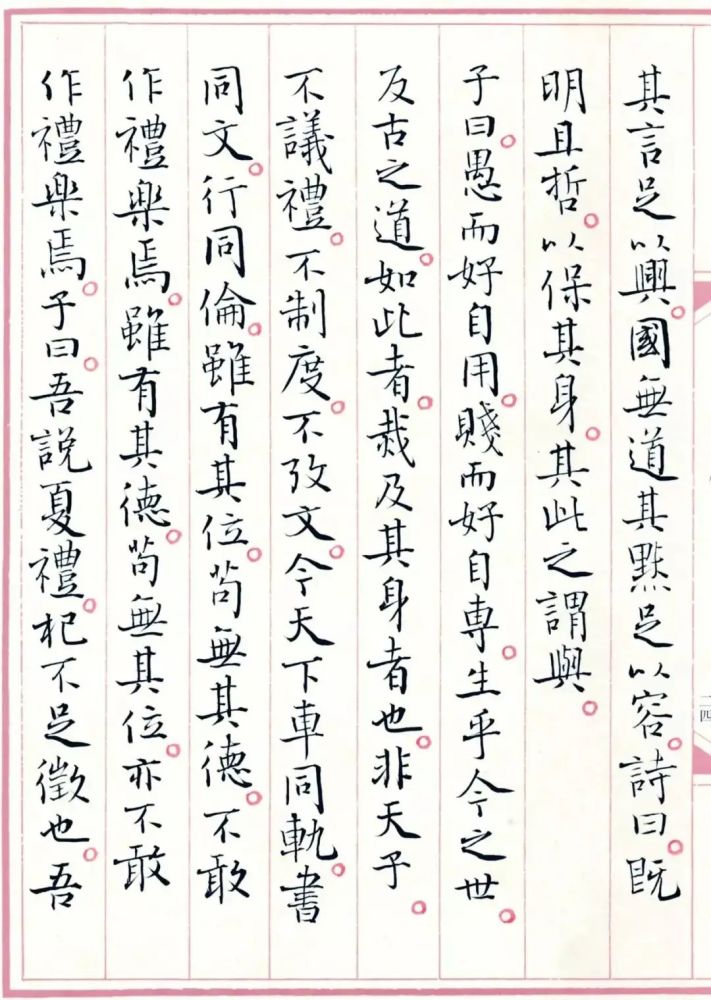 其言足以興。國無道其默足以容。詩曰。既
明且哲。以保其身。其此之謂與。
子曰。愚而好自用。賤而好自專。生乎今之世。
反古之道。如此者。烖及其身者也。非天子。
不議禮。不制度。不攷文。今天下車同軌。書
同文。行同倫。雖有其位。苟無其德。不敢
作禮樂焉。雖有其德。苟無其位。亦不敢
作禮樂焉。子曰。吾說夏禮。杞不足徵也。吾